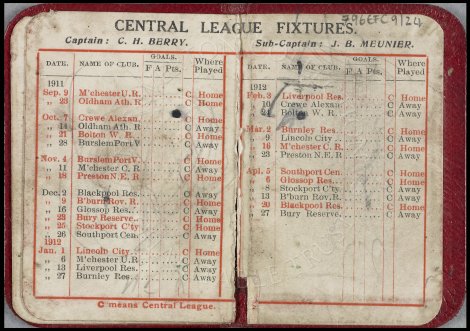 796EFC9/24
CENTRAL LEAGUE FIXTURES.
Captain: C. H. BERRY. Sub-Captain: J. B. MEUNIER.
DATE. NAME OF CLUB. GOALS. F A Pts. Where Played
1911
Sep. 9 M'chester U.R. C Home
„ 23 Oldham Ath. R. C Home
Oct. 7 Crewe Alexan. C Home
„ 14 Oldham Ath. R. C Away
„ 21 Bolton W. R. C Home
„ 28 Burslem Port V. C Away
Nov. 4 Burslem Port V. C Home
„ 11 M'chester C. R. C Away
„ 18 Preston N.E. R. C Home
Dec. 2 Blackpool Res. C Away
„ 9 B'burn Rov. R. C Home
„ 16 Glossop Res. C Away
„ 23 Bury Reserve C Home
„ 25 Stockport C'ty C Home
„ 26 Southport Cen. C Away
1912
Jan. 1 Lincoln City C Home
„ 6 M'chester U.R. C Away
„ 13 Liverpool Res. C Away
„ 27 Burnley Res. C Away
C means Central League.
DATE. NAME OF CLUB. GOALS. F A Pts. Where Played
1912
Feb. 3 Liverpool Res. C Home
„ 10 Crewe Alexan. C Away
„ 24 Bolton W. R. C Away
Mar. 2 Burnley Res. C Home
„ 9 Lincoln City C Away
„ 16 M'chester C. R. C Home
„ 23 Preston N.E. R C Away
Apl. 5 Southport Cen. C Home
„ 6 Glossop Res. C Home
„ 8 Stockport C'ty C Away
„ 13 B'burn Rov. R. C Away
„ 20 Blackpool Res. C Home
„ 27 Bury Reserve. C Away